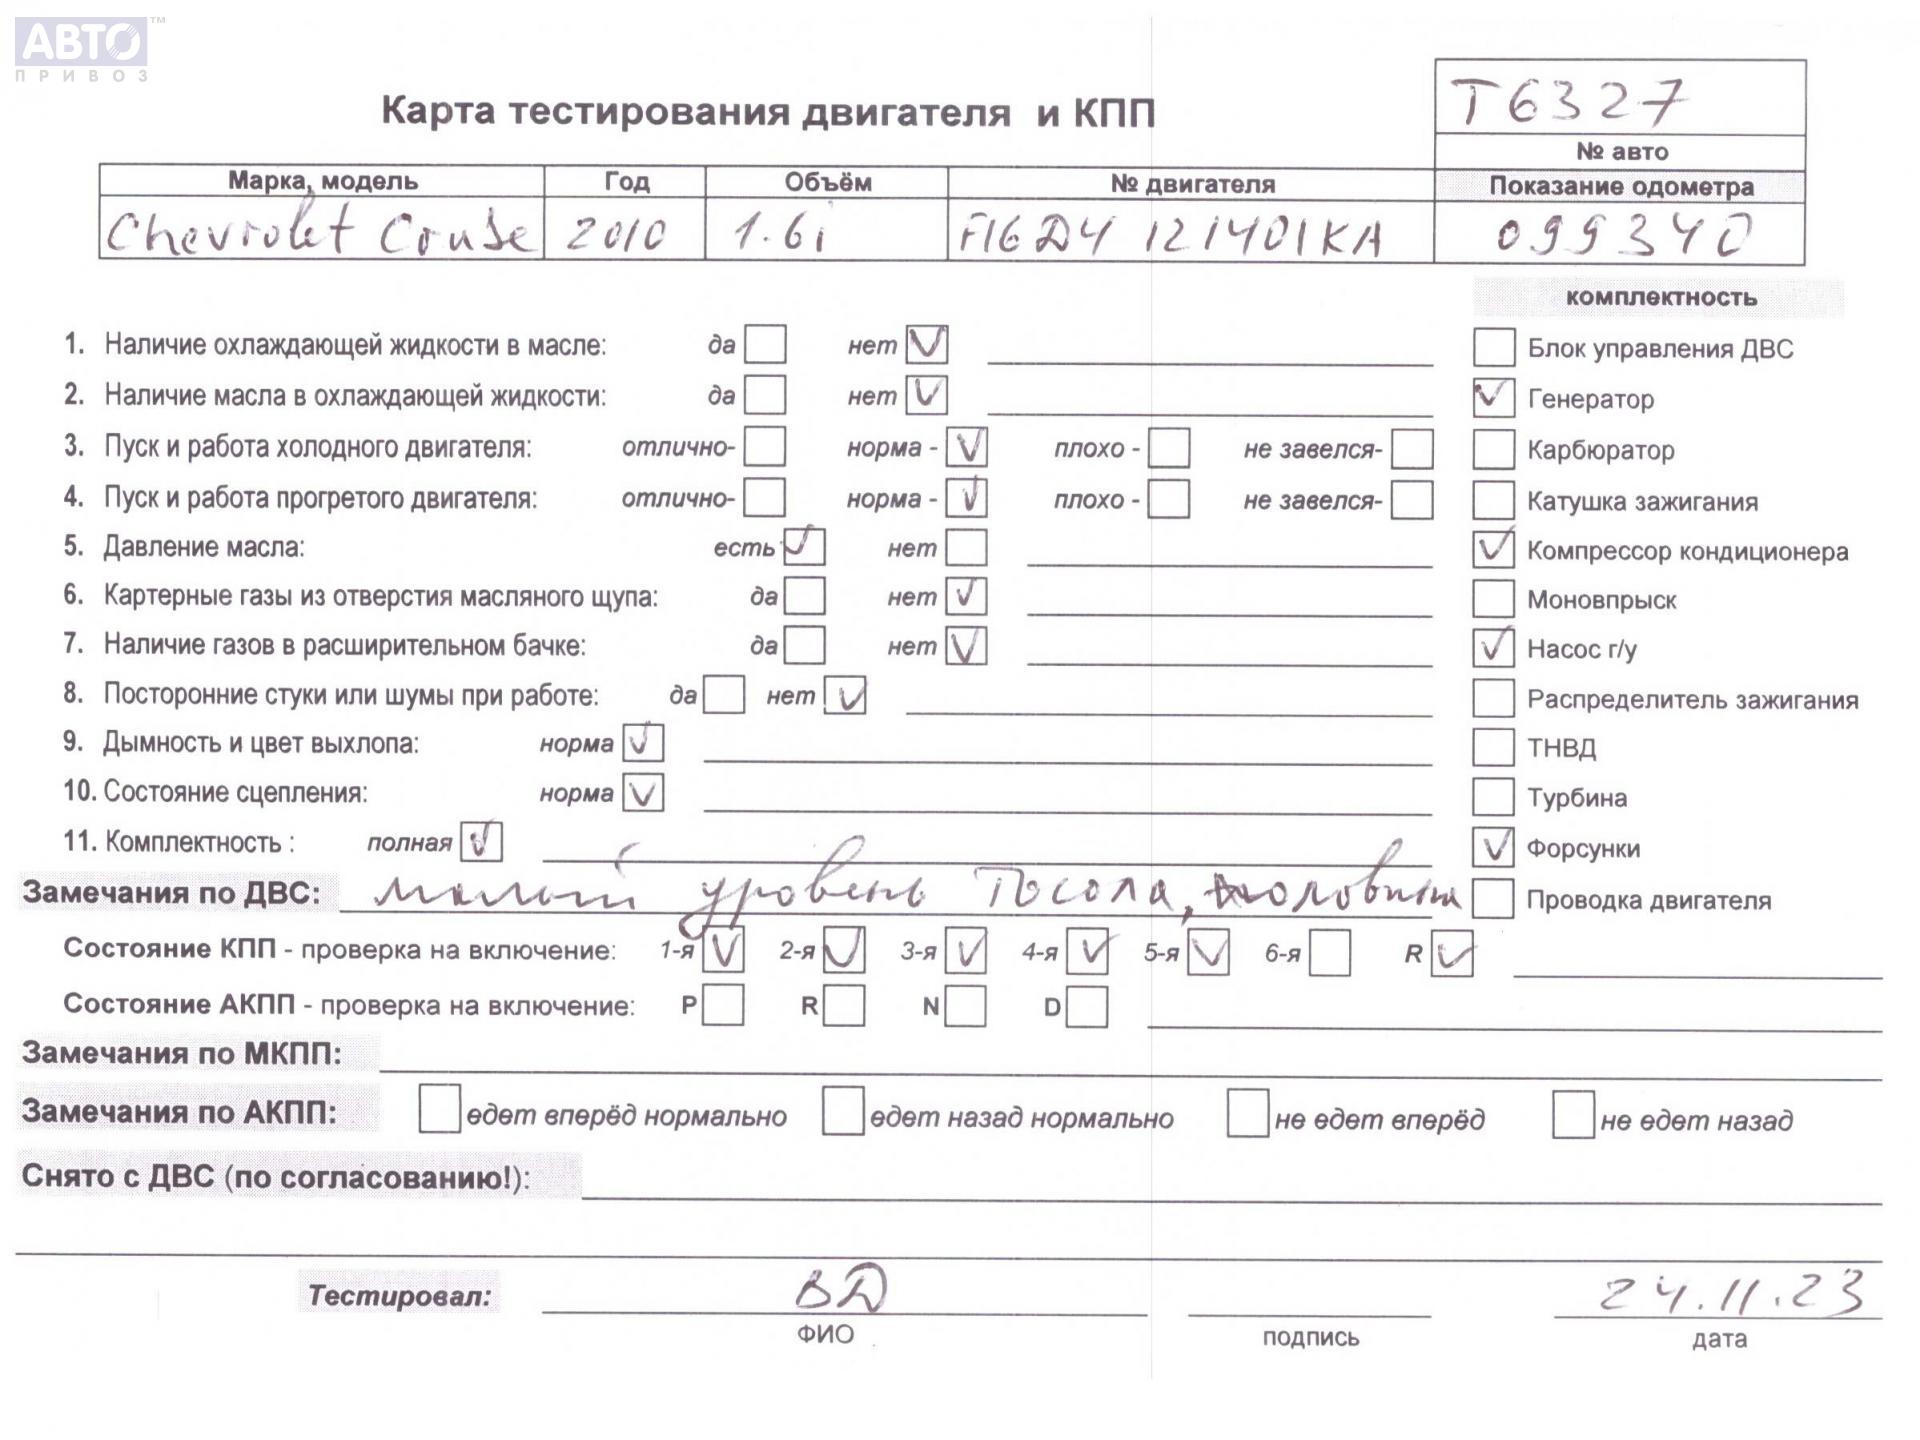 АВТО™
ПРИВОЗ
Карта тестирования двигателя и КПП
Т6327
№ авто
Марка, модель Год Объём № двигателя Показание одометра
Chevrolet Cruse 2010 1.6i F16D4 121401KA 099340
комплектность
1. Наличие охлаждающей жидкости в масле: да нет ✓ Блок управления ДВС
2. Наличие масла в охлаждающей жидкости: да нет ✓ ✓ Генератор
3. Пуск и работа холодного двигателя: отлично- норма - ✓ плохо - не завелся- Карбюратор
4. Пуск и работа прогретого двигателя: отлично- норма - ✓ плохо - не завелся- Катушка зажигания
5. Давление масла: есть ✓ нет ✓ Компрессор кондиционера
6. Картерные газы из отверстия масляного щупа: да нет ✓ Моновпрыск
7. Наличие газов в расширительном бачке: да нет ✓ ✓ Насос г/у
8. Посторонние стуки или шумы при работе: да нет ✓ Распределитель зажигания
9. Дымность и цвет выхлопа: норма ✓ ТНВД
10. Состояние сцепления: норма ✓ Турбина
11. Комплектность : полная ✓ ✓ Форсунки
Замечания по ДВС: малый уровень Тосола, половина Проводка двигателя
Состояние КПП - проверка на включение: 1-я ✓ 2-я ✓ 3-я ✓ 4-я ✓ 5-я ✓ 6-я R ✓
Состояние АКПП - проверка на включение: P R N D
Замечания по МКПП:
Замечания по АКПП: едет вперёд нормально едет назад нормально не едет вперёд не едет назад
Снято с ДВС (по согласованию!):
Тестировал: ВД 24.11.23
ФИО подпись дата